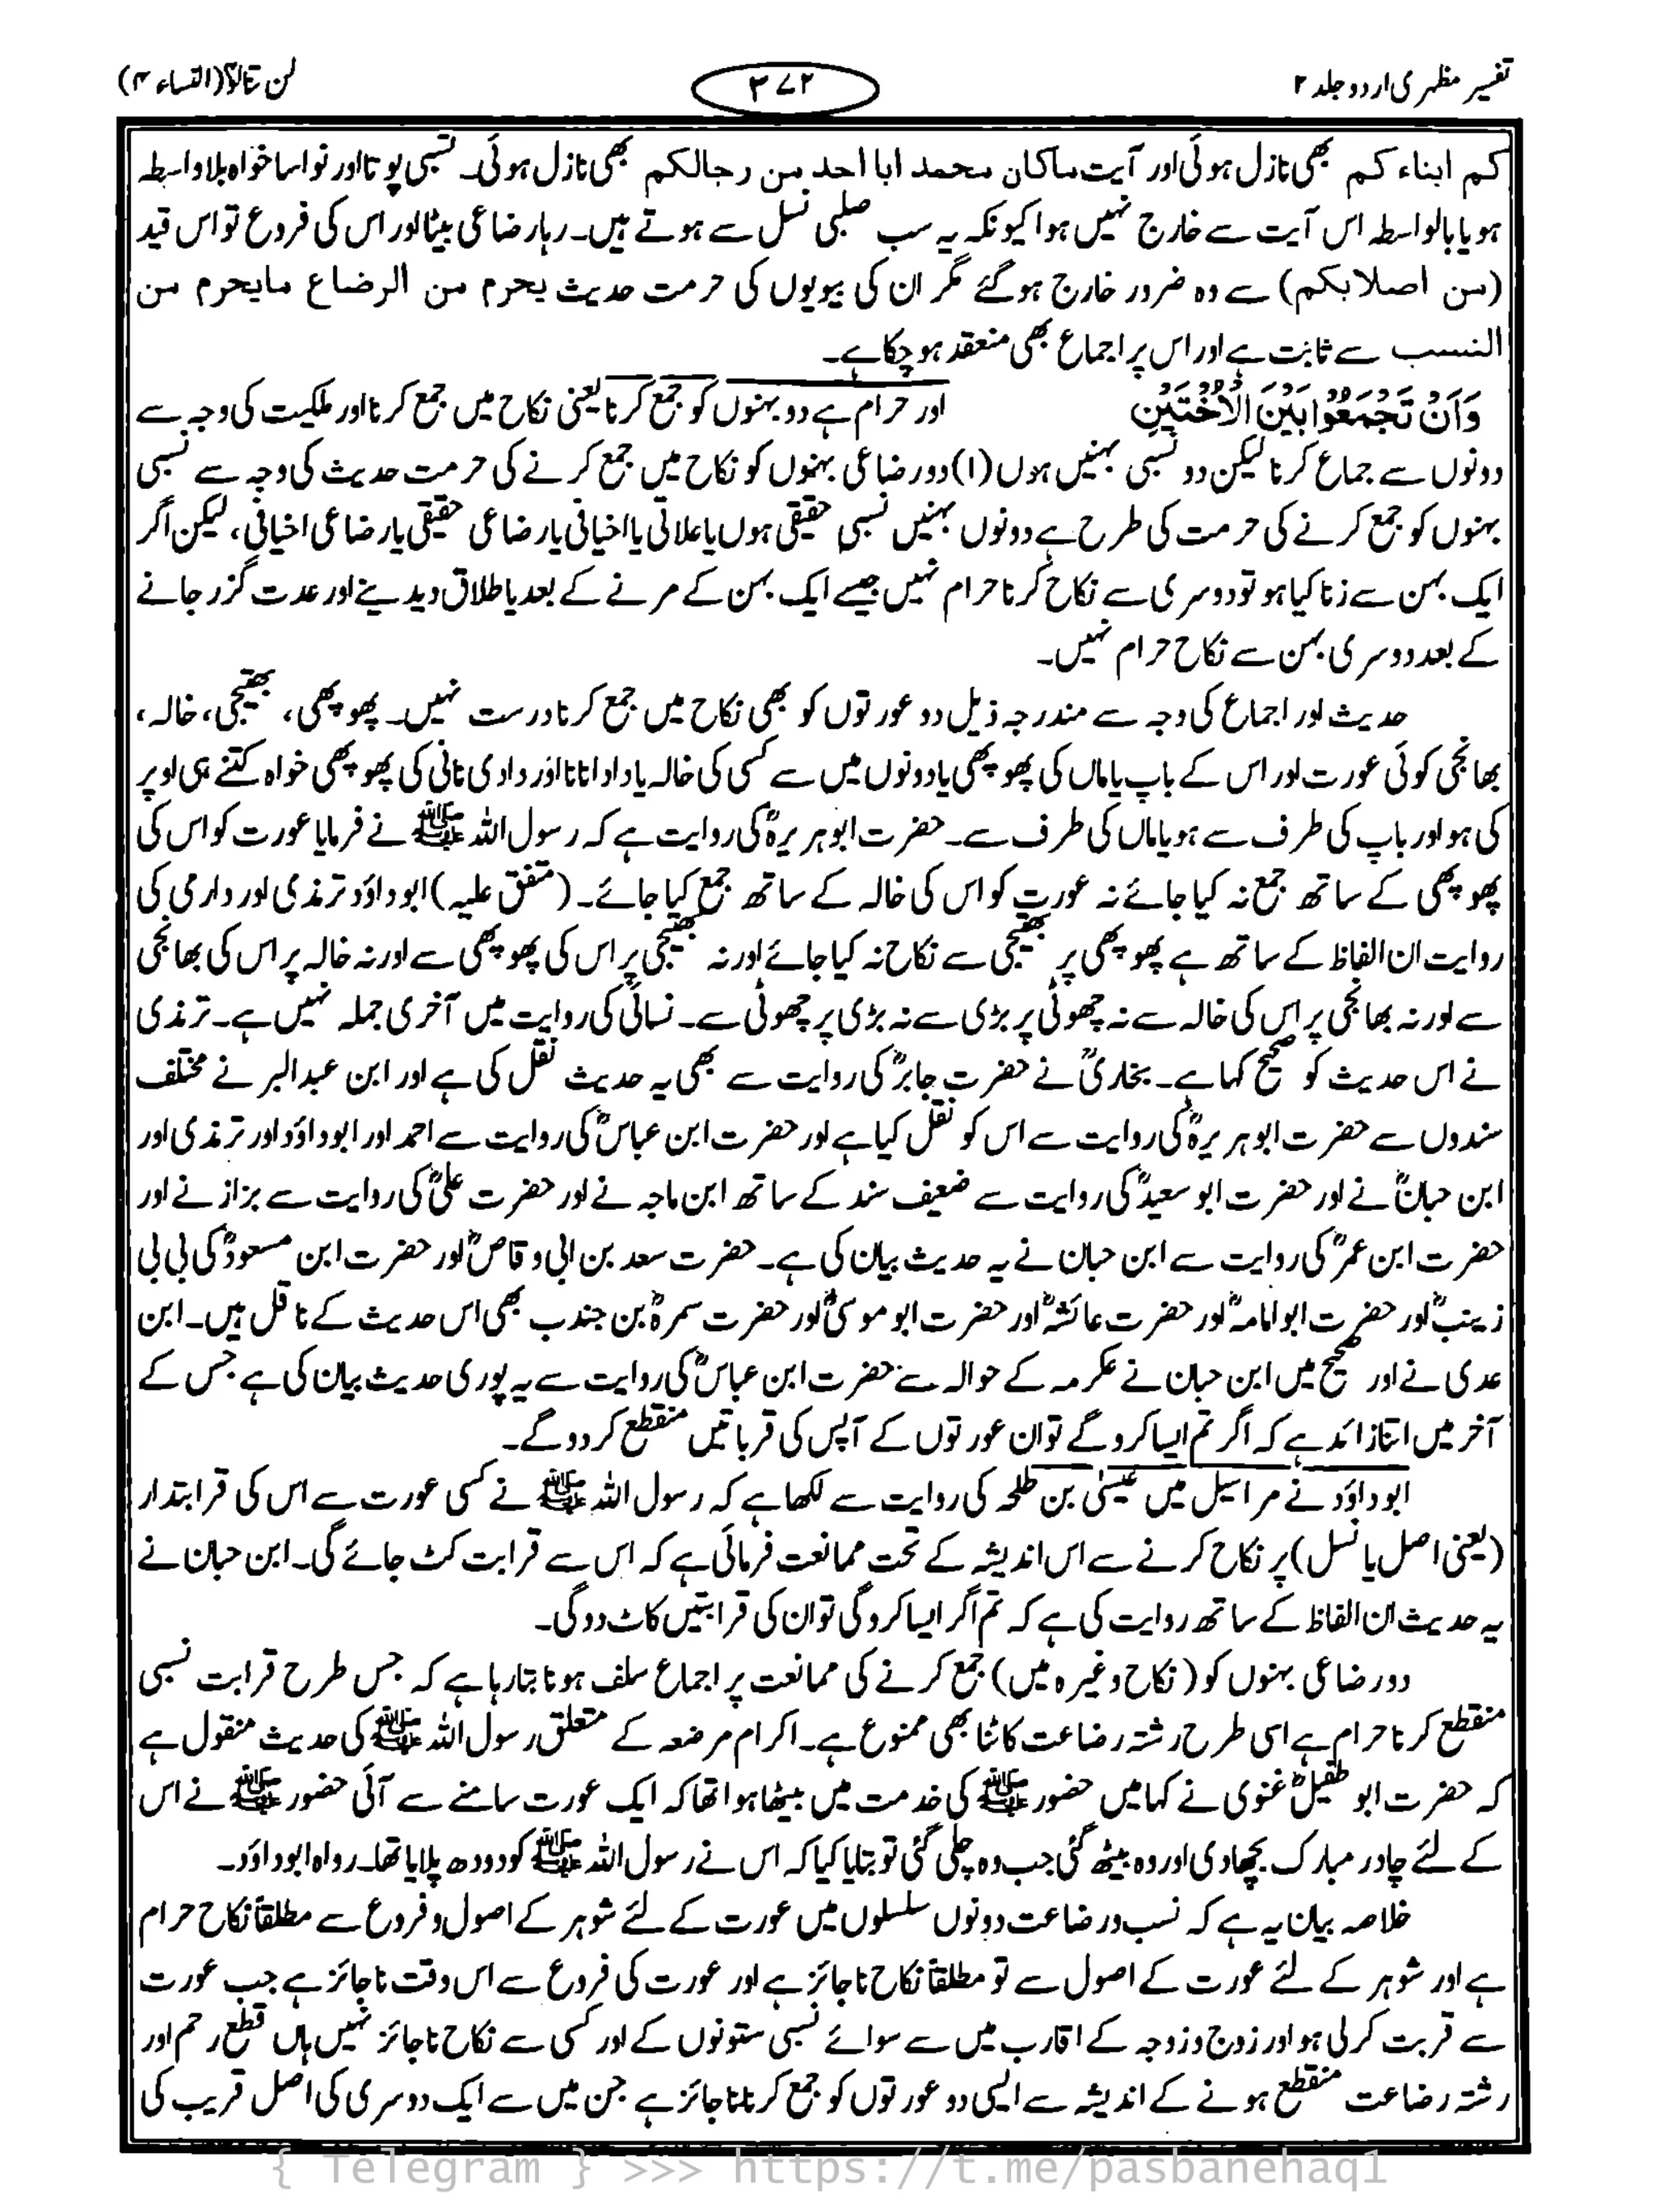 تفسیر مظہری اردو جلد ۲
۳۷۲
لن تنالوا (النساء ۴)
کم ابناء کم بھی نازل ہوئی اور آیت ماکان محمد ابا احد من رجالکم بھی نازل ہوئی۔ نسبی پوتا اور نواسا خواہ بلا واسطہ
ہو یا بالواسطہ اس آیت سے خارج نہیں ہوا کیونکہ یہ سب صلبی نسل سے ہوتے ہیں۔ رہا رضاعی بیٹا اور اس کی فروع تو اس قید
(من اصلابکم) سے وہ ضرور خارج ہوگئے مگر ان کی بیویوں کی حرمت حدیث یحرم من الرضاع مایحرم من
النسب سے ثابت ہے اور اس پر اجماع بھی منعقد ہوچکا ہے۔
وَاَنْ تَجْمَعُوْا بَیْنَ الْاُخْتَیْنِ اور حرام ہے دو بہنوں کو جمع کرنا یعنی نکاح میں جمع کرنا اور ملکیت کی وجہ سے
دونوں سے جماع کرنا لیکن دو نسبی بہنیں ہوں (۱) دو رضاعی بہنوں کو نکاح میں جمع کرنے کی حرمت حدیث کی وجہ سے نسبی
بہنوں کو جمع کرنے کی حرمت کی طرح ہے دونوں بہنیں نسبی حقیقی ہوں یا علاتی یا اخیافی یا رضاعی حقیقی یا رضاعی اخیافی، لیکن اگر
ایک بہن سے زنا کیا ہو تو دوسری سے نکاح کرنا حرام نہیں جیسے ایک بہن کے مرنے کے بعد یا طلاق دیدینے اور عدت گزر جانے
کے بعد دوسری بہن سے نکاح حرام نہیں۔
حدیث اور اجماع کی وجہ سے مندرجہ ذیل دو عورتوں کو بھی نکاح میں جمع کرنا درست نہیں۔ پھوپھی، بھتیجی، خالہ،
بھانجی کوئی عورت اور اس کے باپ یا ماں کی پھوپھی یا دونوں میں سے کسی کی خالہ یا دادا نانا اور دادی نانی کی پھوپھی خواہ کتنے ہی اوپر
کی ہو اور باپ کی طرف سے ہو یا ماں کی طرف سے۔ حضرت ابوہریرہؓ کی روایت ہے کہ رسول اللہ ﷺ نے فرمایا عورت کو اس کی
پھوپھی کے ساتھ جمع نہ کیا جائے نہ عورت کو اس کی خالہ کے ساتھ جمع کیا جائے۔ (متفق علیہ) ابوداؤد ترمذی اور دارمی کی
روایت ان الفاظ کے ساتھ ہے پھوپھی پر بھتیجی سے نکاح نہ کیا جائے اور نہ بھتیجی پر اس کی پھوپھی سے اور نہ خالہ پر اس کی بھانجی
سے اور نہ بھانجی پر اس کی خالہ سے نہ چھوٹی پر بڑی سے نہ بڑی پر چھوٹی سے۔ نسائی کی روایت میں آخری جملہ نہیں ہے۔ ترمذی
نے اس حدیث کو صحیح کہا ہے۔ بخاریؒ نے حضرت جابرؓ کی روایت سے بھی یہ حدیث نقل کی ہے اور ابن عبدالبر نے مختلف
سندوں سے حضرت ابوہریرہؓ کی روایت سے اس کو نقل کیا ہے اور حضرت ابن عباسؓ کی روایت سے احمد اور ابوداؤد اور ترمذی اور
ابن حبانؒ نے اور حضرت ابوسعیدؓ کی روایت سے ضعیف سند کے ساتھ ابن ماجہ نے اور حضرت علیؓ کی روایت سے بزاز نے اور
حضرت ابن عمرؓ کی روایت سے ابن حبان نے یہ حدیث بیان کی ہے۔ حضرت سعد بن ابی وقاصؓ اور حضرت ابن مسعودؓ کی بی بی
زینبؓ اور حضرت ابوامامہؓ اور حضرت عائشہؓ اور حضرت ابو موسیٰؓ اور حضرت سمرہؓ بن جندب بھی اس حدیث کے ناقل ہیں۔ ابن
عدی نے اور صحیح میں ابن حبان نے عکرمہ کے حوالہ سے حضرت ابن عباسؓ کی روایت سے یہ پوری حدیث بیان کی ہے جس کے
آخر میں اتنا زائد ہے کہ اگر تم ایسا کرو گے تو ان عورتوں کے آپس کی قرباتیں منقطع کر دو گے۔
ابوداؤد نے مراسیل میں عیسیٰ بن طلحہ کی روایت سے لکھا ہے کہ رسول اللہ ﷺ نے کسی عورت سے اس کی قرابتدار
(یعنی اصل یا نسل) پر نکاح کرنے سے اس اندیشہ کے تحت ممانعت فرمائی ہے کہ اس سے قرابت کٹ جائے گی۔ ابن حبان نے
یہ حدیث ان الفاظ کے ساتھ روایت کی ہے کہ تم اگر ایسا کرو گی تو ان کی قرابتیں کاٹ دو گی۔
دو رضاعی بہنوں کو (نکاح وغیرہ میں) جمع کرنے کی ممانعت پر اجماع سلف ہونا بتا رہا ہے کہ جس طرح قرابت نسبی
منقطع کرنا حرام ہے اسی طرح رشتہ رضاعت کاٹنا بھی ممنوع ہے۔ اکرام مرضعہ کے متعلق رسول اللہ ﷺ کی حدیث منقول ہے
کہ حضرت ابو طفیلؓ غنوی نے کہا میں حضور ﷺ کی خدمت میں بیٹھا ہوا تھا کہ ایک عورت سامنے سے آئی حضور ﷺ نے اس
کے لئے چادر مبارک بچھا دی اور وہ بیٹھ گئی جب وہ چلی گئی تو بتایا گیا کہ اس نے رسول اللہ ﷺ کو دودھ پلایا تھا۔ رواہ ابوداؤد۔
خلاصہ بیان یہ ہے کہ نسب و رضاعت دونوں سلسلوں میں عورت کے لئے شوہر کے اصول و فروع سے مطلقاً نکاح حرام
ہے اور شوہر کے لئے عورت کے اصول سے تو مطلقاً نکاح ناجائز ہے اور عورت کی فروع سے اس وقت ناجائز ہے جب عورت
سے قربت کرلی ہو اور زوج و زوجہ کے اقارب میں سے سوائے نسبی ستونوں کے اور کسی سے نکاح ناجائز نہیں ہاں قطع رحم اور
رشتہ رضاعت منقطع ہونے کے اندیشہ سے ایسی دو عورتوں کو جمع کرنا ناجائز ہے جن میں سے ایک دوسری کی اصل قریب کی
{ Telegram } >>> https://t.me/pasbanehaq1